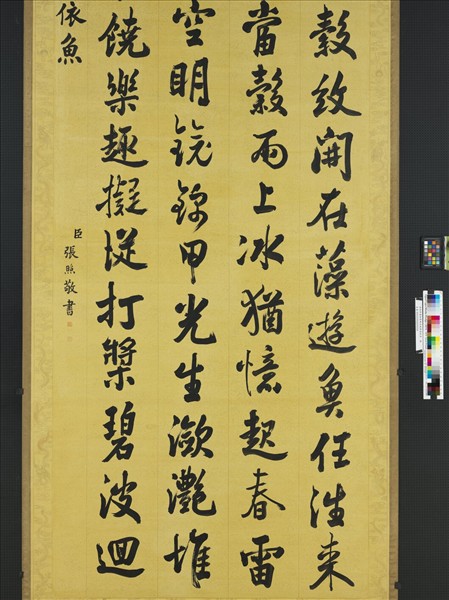 縠紋開在藻遊魚任往来
當穀雨上冰猶憶起春雷
空明鏡錦甲光生瀲灧堆
饒樂趣擬從打槳碧波迴
依魚
臣張照敬書